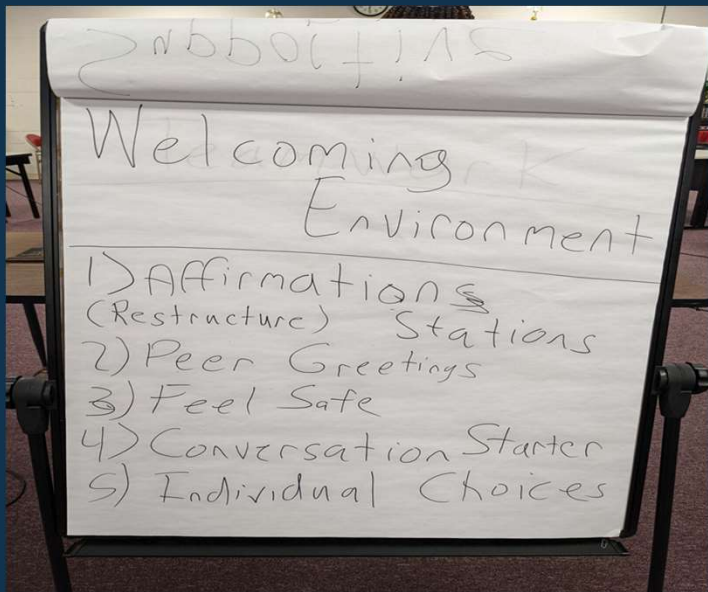 Welcoming
Environment
1) Affirmations
(Restructure) Stations
2) Peer Greetings
3) Feel Safe
4) Conversation Starter
5) Individual Choices